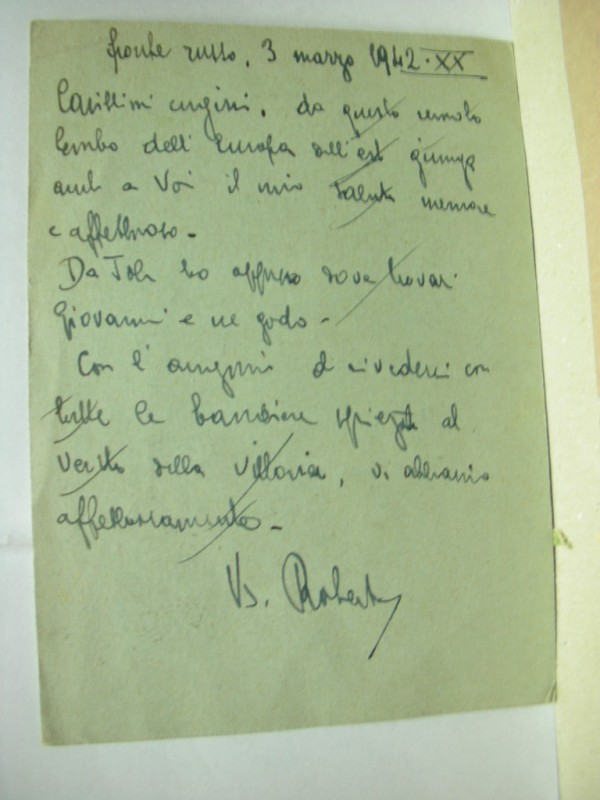 fronte russo, 3 marzo 1942 · XX
Carissimi cugini, da questo remoto
lembo dell'Europa dell'est giunga
anche a Voi il mio saluto memore
e affettuoso -
Da Iole ho appreso dove trovasi
Giovanni e ne godo -
Con l'augurio di rivederci con
tutte le bandiere spiegate al
vento della vittoria, vi abbraccio
affettuosamente -
Vs. Roberto